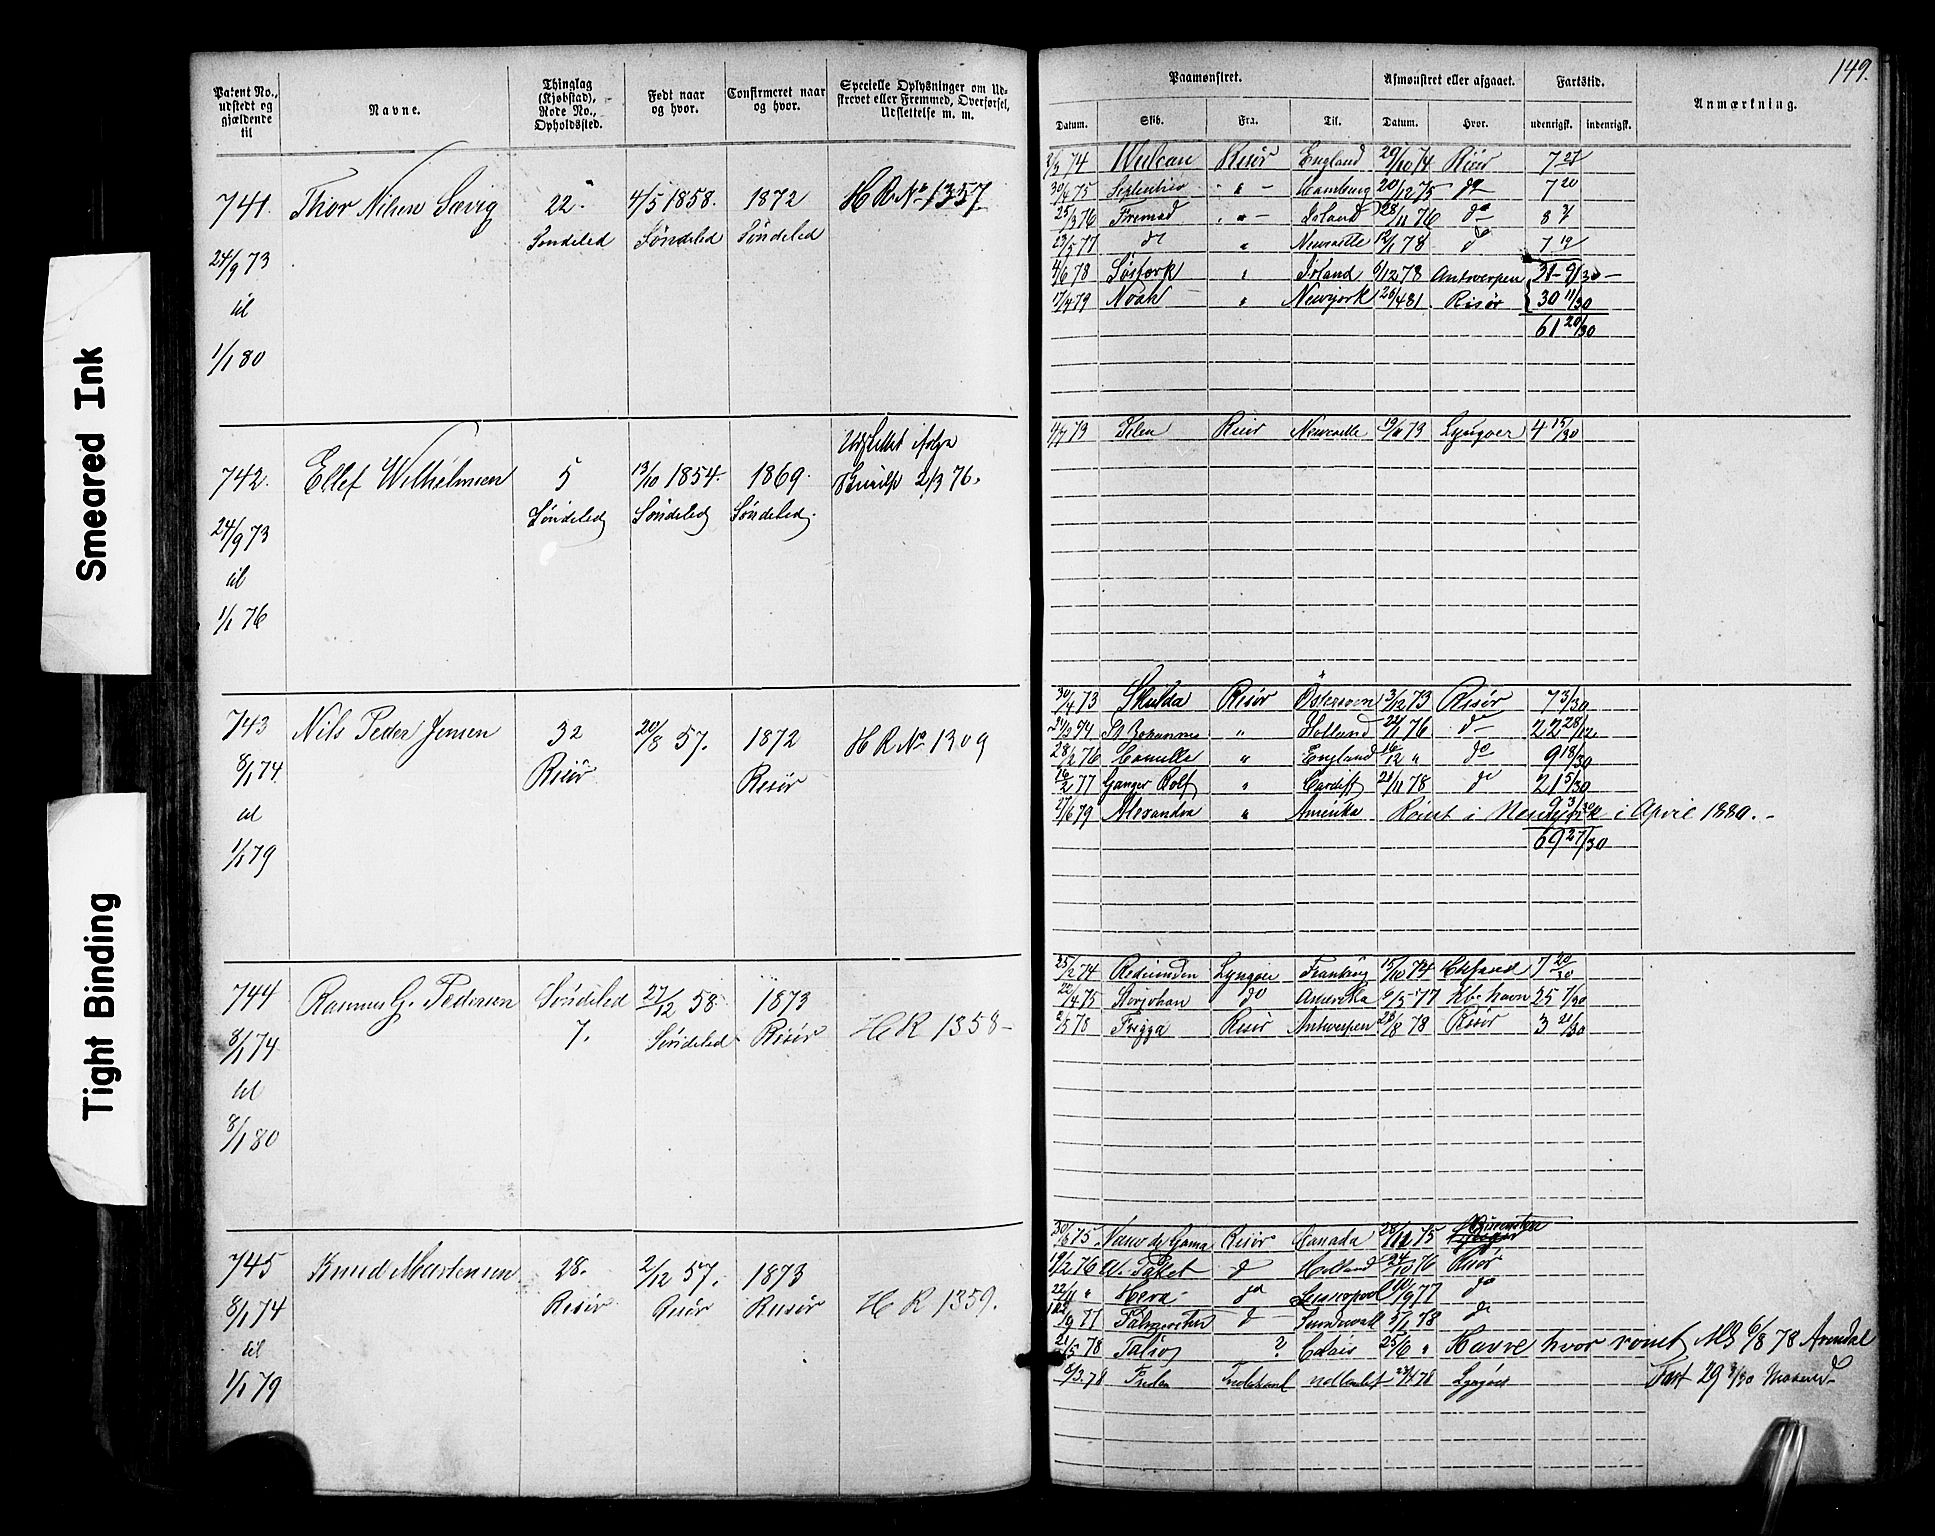 149.
Patent No., udstedt og gjældende til
Navne.
Thinglag (Kjøbstad), Rode No., Opholdssted.
Født naar og hvor.
Confirmeret naar og hvor.
Specielle Oplysninger om Udskrevet eller Fremmed, Overførsel, Udslettelse m. m.
Paamønstret.
Afmønstret eller afgaaet.
Fartstid.
Anmærkning.
Datum. Skib. Fra. Til. Datum. Hvor. udenrigsk. indenrigsk.
741. Thor Nilsen Sævig 22. 4/5 1858. 1872 H R No 1357
Søndeled Søndeled Søndeled
24/9 73
til
1/1 80
74 Vulcan Risør England 29/10 74 Risør 7 27
30/4 75 September " Hamburg 20/12 75 do 7 20
25/3 76 Fremad " Island 28/11 76 do
23/5 77 do " Newcastle 12/1 78 do 7 19
4/6 78 " Irland 6/12 78 Antwerpen 31 9/30
17/4 79 Noah " Newyork 26/4 81. Risør 30 11/30
61 20/30
742. Ellef Wilhelmsen 5 13/10 1854. 1869. Udslettet ifølge 2/3 76.
Søndeled Søndeled Søndeled.
24/9 73
til
1/1 76
73 Risør Newcastle 19/11 73 Lyngøer 4 15/30
743 Nils Peder Jensen 32 20/8 57. 1872 H R No 1309
Risør Risør
8/1 74
til
1/1 79
30/4 73 Skulda Risør Östersøen 3/12 73 Risør 7 3/30
St Johannes " Holland 22/1 76 do 22 28/
28/2 76 Camilla " England 16/12 " do 9 18/30
16/2 77 Ganger Rolf " Cardiff 21/11 78 do 21 5/30
27/6 79 Alexandra " Amerika Rømt i Newyork i April 1880. -
69 27/30
744 Rasmus G. Pedersen Søndeled 27/12 58 1873 H R 1358 -
7. Søndeled Risør
8/1 74
til
8/1 80
25/2 74 Lyngøer Frankrig 15/10 74 7 20/30
22/4 75 Storjohan do Amerika 6/5 77 Kbhavn 25 7/30
2/5 78 Frigga Risør Antwerpen 23/8 78 Risør 3 21/30
745 Knud Martensen 28. 2/12 57. 1873 H R 1359.
Risør Risør Risør
8/1 74
til
1/1 79
30/6 75. Vasco de Gama Risør Canada 28/12 75
19/2 76 do Holland 24/10 76 Risør
22/11 " Hera do Liverpool 10/9 77 do
9 77 do Sundsvall 5/1 78 do
21/5 78 ? Calais 25/6 " Havre hvor rømt 6/8 78 Arendal
78 78 Lyngør Fart 29 Maaned
Smeared Ink
Tight Binding